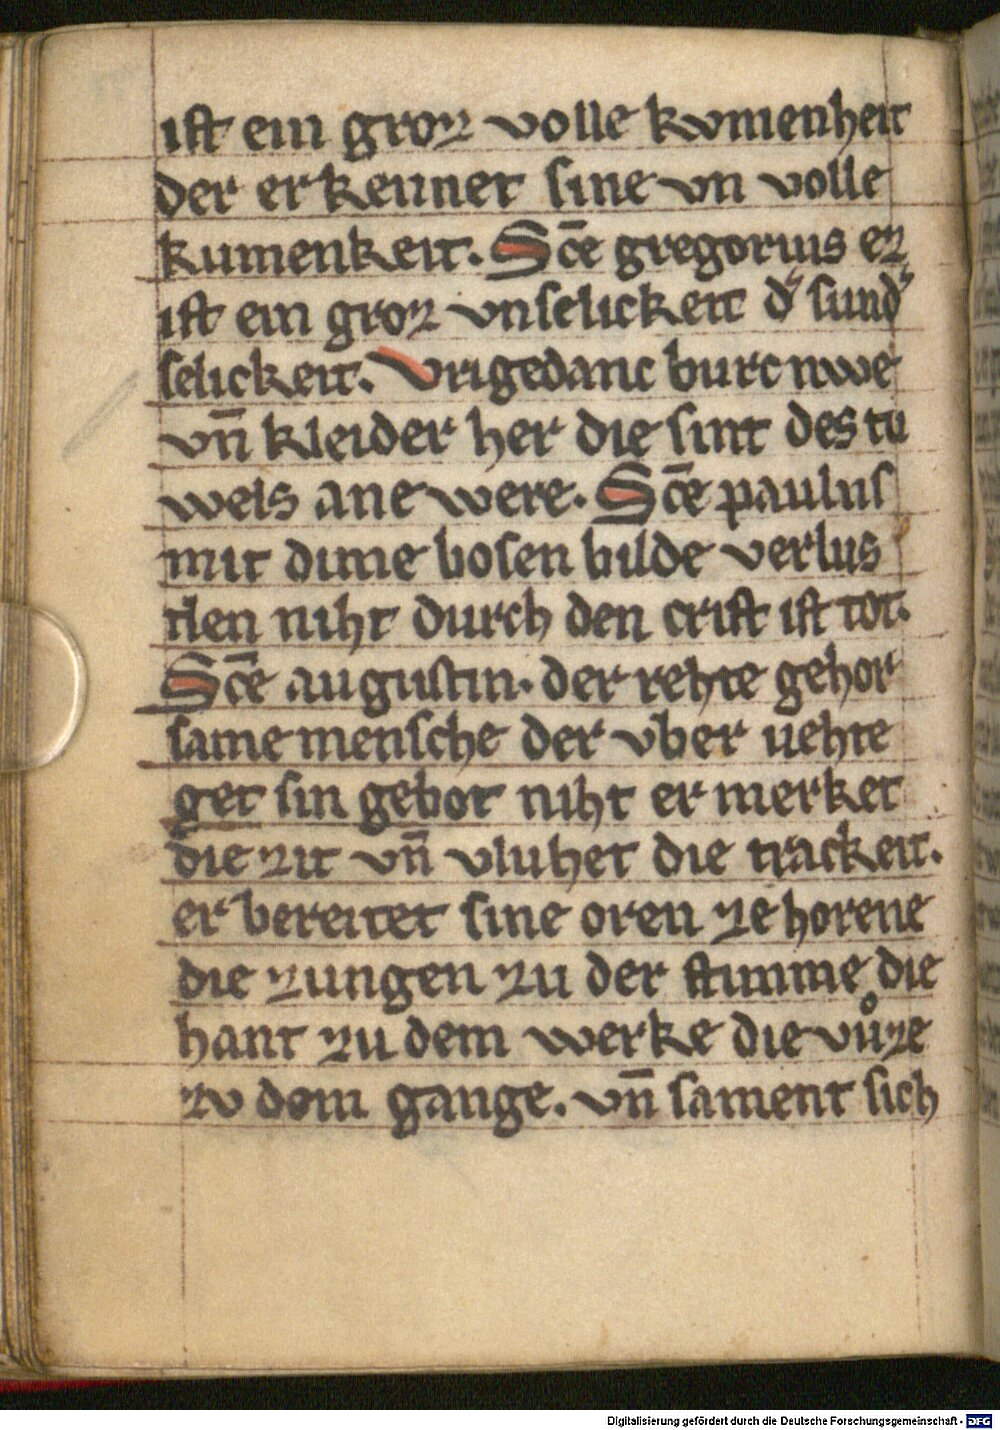 ist ein groz volle kvmenheit
der erkennet sine vn volle
kumenkeit. Sc̄e gregorius ez
ist ein groz vnselickeit d' sund'
selickeit. Vrigedanc burc nwe
vn̄ kleider her die sint des tu
wels ane were. Sc̄e paulus
mit dime bosen bilde verlus
den niht durch den crist ist tot.
Sc̄e augustin. der rehte gehor
same mensche der vber uehte
get sin gebot niht er merket
die zit vn̄ vluhet die trackeit.
er bereitet sine oren ze horene
die zungen zu der stimme die
hant zu dem werke die vůze
zv dem gange. vn̄ sament sich
Digitalisierung gefördert durch die Deutsche Forschungsgemeinschaft - DFG